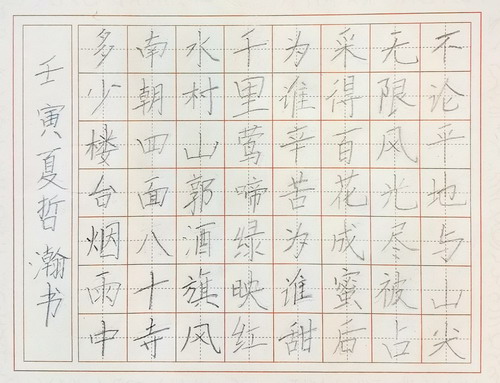 不论平地与山尖
无限风光尽被占
采得百花成蜜后
为谁辛苦为谁甜
千里莺啼绿映红
水村山郭酒旗风
南朝四面八十寺
多少楼台烟雨中
壬寅夏哲瀚书